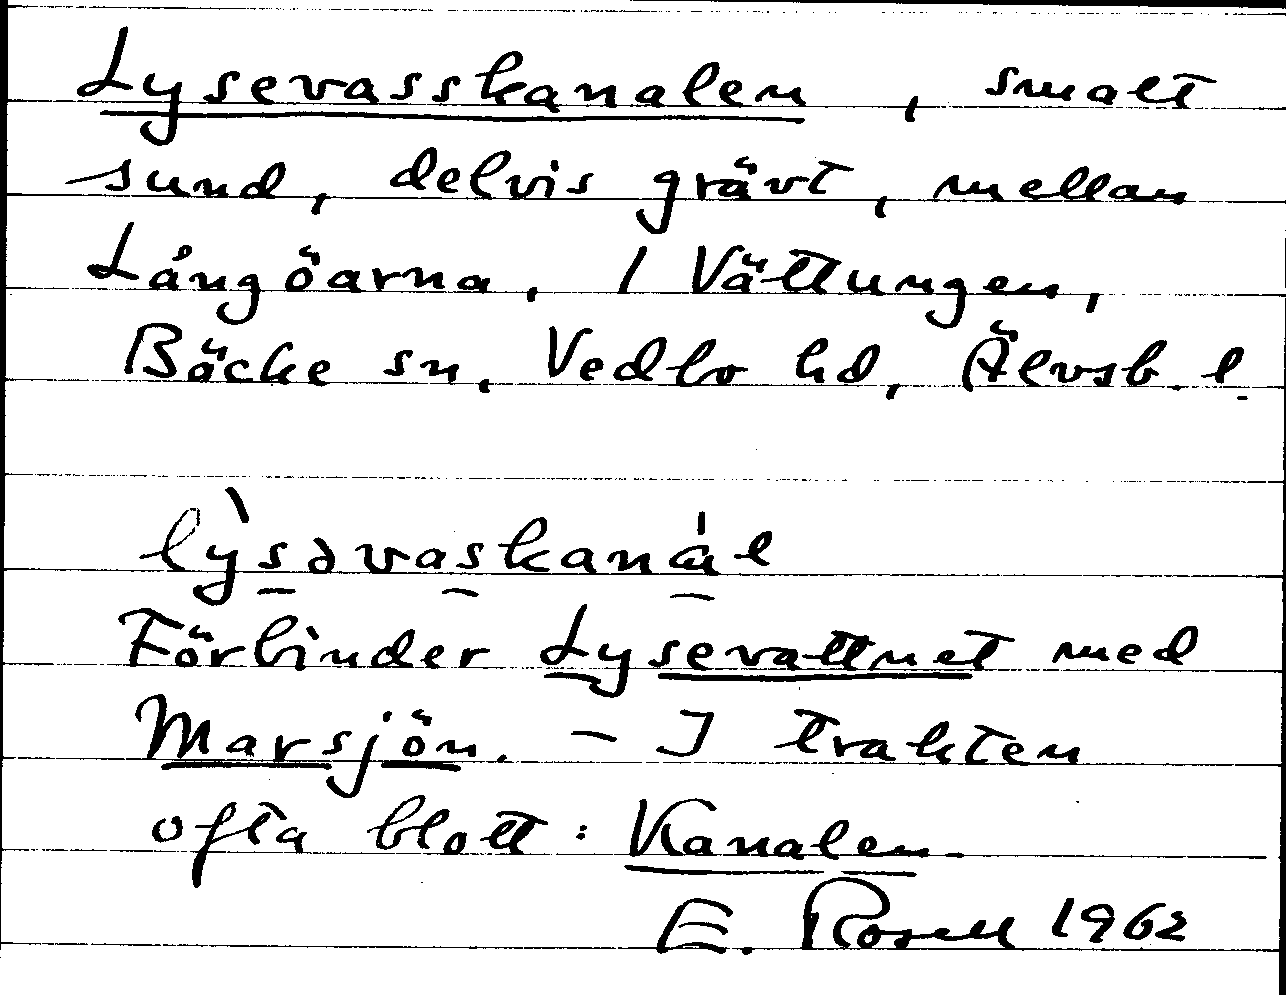 Lysevasskanalen, smalt
sund, delvis grävt, mellan
Långöarna, / Vättungen,
Bäcke sn, Vedbo hd, Älvsb. l.
lỳsəvaskanál
Förbinder Lysevattnet med
Marsjön. – I trakten
ofta blott: Kanalen.
E. Rosell 1962